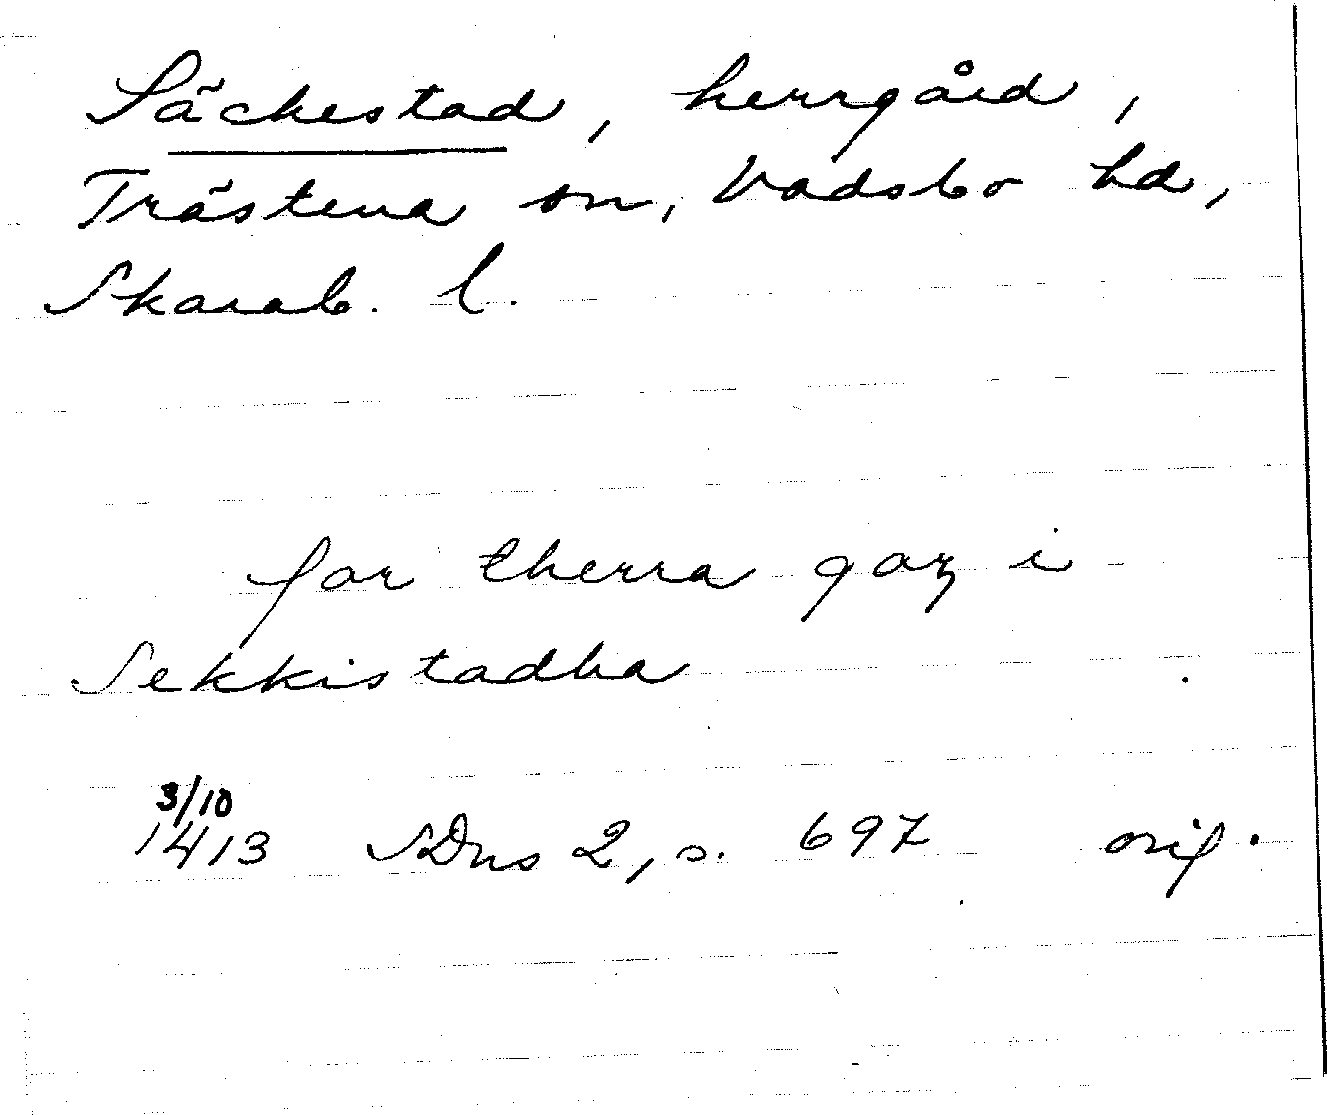 Säckestad, herrgård,
Trästena sn, Vadsbo hd,
Skarab. l.
for therra gaz i
Sekkistadha
3/10
1413 SDns 2, s. 697 orig.